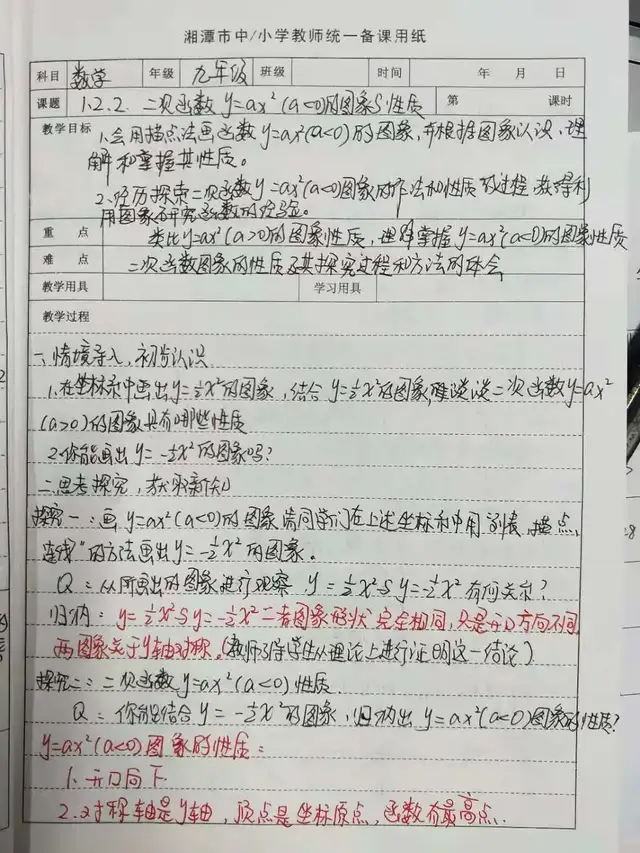 湘潭市中/小学教师统一备课用纸
科目 数学 年级 九年级 班级 时间 年 月 日
课题 1.2.2. 二次函数 y=ax²(a<0)的图象与性质 第 课时
教学目标 1.会用描点法画函数y=ax²(a<0)的图象,并根据图象认识、理
解和掌握其性质。
2.经历探索二次函数y=ax²(a<0)图象的作法和性质的过程,获得利
用图象研究函数的经验。
重 点 类比y=ax²(a>0)的图象性质,理解掌握y=ax²(a<0)的图象性质
难 点 二次函数图象的性质及其探究过程和方法的体会
教学用具 学习用具
教学过程
一、情境导入,初步认识
1.在坐标系中画出y=½x²的图象,结合y=½x²的图象,谈谈二次函数y=ax²
(a>0)的图象具有哪些性质
2.你能画出y=-½x²的图象吗?
二、思考探究,获取新知
探究一:画y=ax²(a<0)的图象 请同学们在上述坐标系中用“列表、描点、
连线”的方法画出y=-½x²的图象。
Q:从所画出的图象进行观察 y=½x²与y=-½x²有何关系?
归纳:y=½x²与y=-½x²二者图象形状完全相同,只是开口方向不同,
两图象关于y轴对称。(教师引导学生从理论上进行证明这一结论)
探究二:二次函数y=ax²(a<0)性质.
Q:你能结合y=-½x²的图象,归纳出y=ax²(a<0)图象的性质?
y=ax²(a<0)图象的性质:
1.开口向下
2.对称轴是y轴,顶点是坐标原点,函数有最高点.